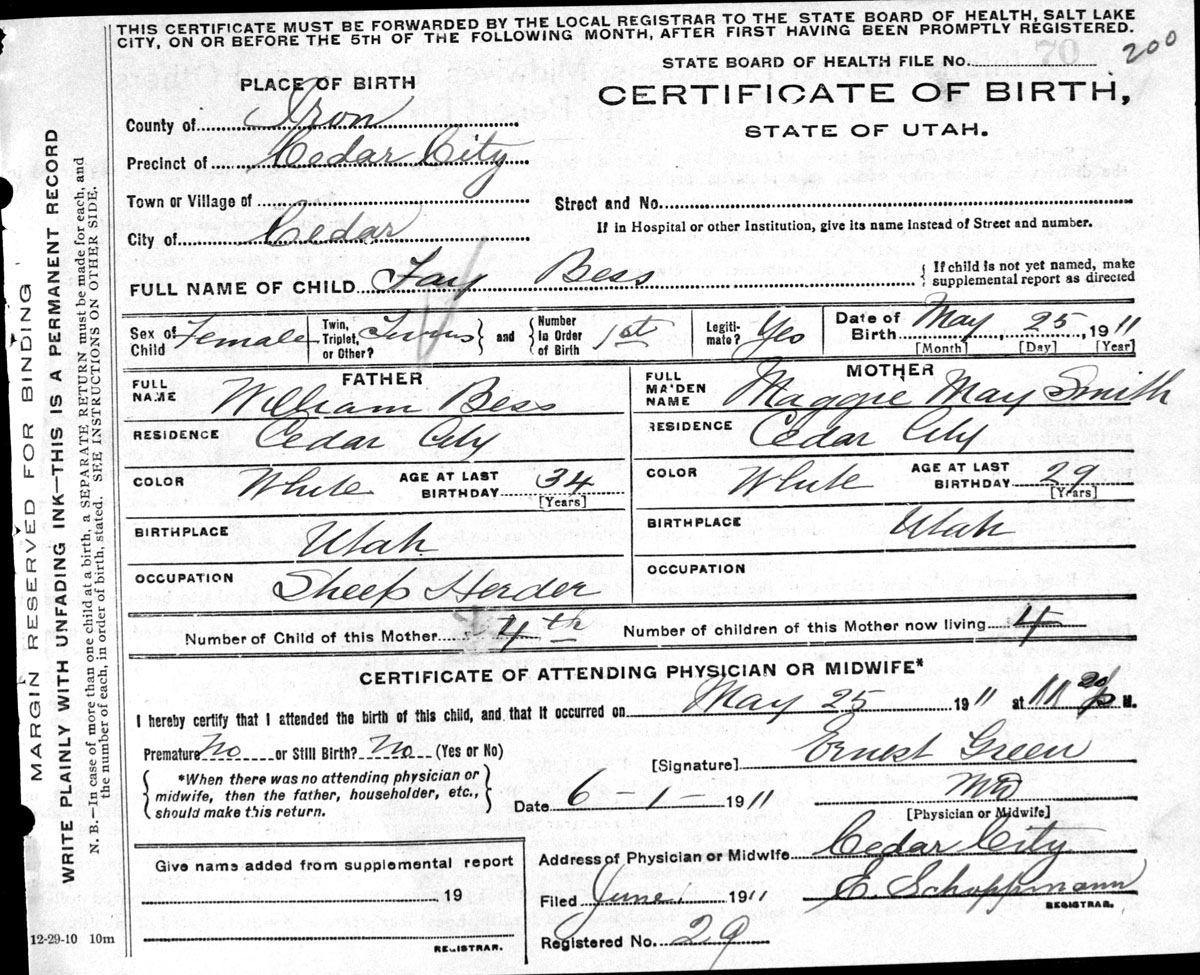 THIS CERTIFICATE MUST BE FORWARDED BY THE LOCAL REGISTRAR TO THE STATE BOARD OF HEALTH, SALT LAKE
CITY, ON OR BEFORE THE 5TH OF THE FOLLOWING MONTH, AFTER FIRST HAVING BEEN PROMPTLY REGISTERED.
200
STATE BOARD OF HEALTH FILE No. 70
PLACE OF BIRTH
CERTIFICATE OF BIRTH,
STATE OF UTAH.
County of Iron
Precinct of Cedar City
Town or Village of
Street and No.
City of Cedar
If in Hospital or other Institution, give its name instead of Street and number.
FULL NAME OF CHILD Fay Bess
If child is not yet named, make
supplemental report as directed
Sex of Child Female
Twin, Triplet, or Other? Twins
and
Number In Order of Birth 1st
Legiti- mate? Yes
Date of Birth May 25, 1911
[Month] [Day] [Year]
FATHER
FULL NAME William Bess
RESIDENCE Cedar City
COLOR White AGE AT LAST BIRTHDAY 34
[Years]
BIRTHPLACE Utah
OCCUPATION Sheep Herder
MOTHER
FULL MAIDEN NAME Maggie May Smith
RESIDENCE Cedar City
COLOR White AGE AT LAST BIRTHDAY 29
[Years]
BIRTHPLACE Utah
OCCUPATION
Number of Child of this Mother 4th Number of children of this Mother now living 4
CERTIFICATE OF ATTENDING PHYSICIAN OR MIDWIFE*
I hereby certify that I attended the birth of this child, and that it occurred on May 25 1911 at 11 20 P M.
Premature No or Still Birth? No (Yes or No)
*When there was no attending physician or
midwife, then the father, householder, etc.,
should make this return.
[Signature] Ernest Green
Date 6-1-1911 MD
[Physician or Midwife]
Give name added from supplemental report
19
REGISTRAR.
Address of Physician or Midwife Cedar City
Filed June, 1911 E. Schoppmann
REGISTRAR.
Registered No. 29
12-29-10 10m
MARGIN RESERVED FOR BINDING
WRITE PLAINLY WITH UNFADING INK—THIS IS A PERMANENT RECORD
N. B.—In case of more than one child at a birth, a SEPARATE RETURN must be made for each, and
the number of each, in order of birth, stated. SEE INSTRUCTIONS ON OTHER SIDE.